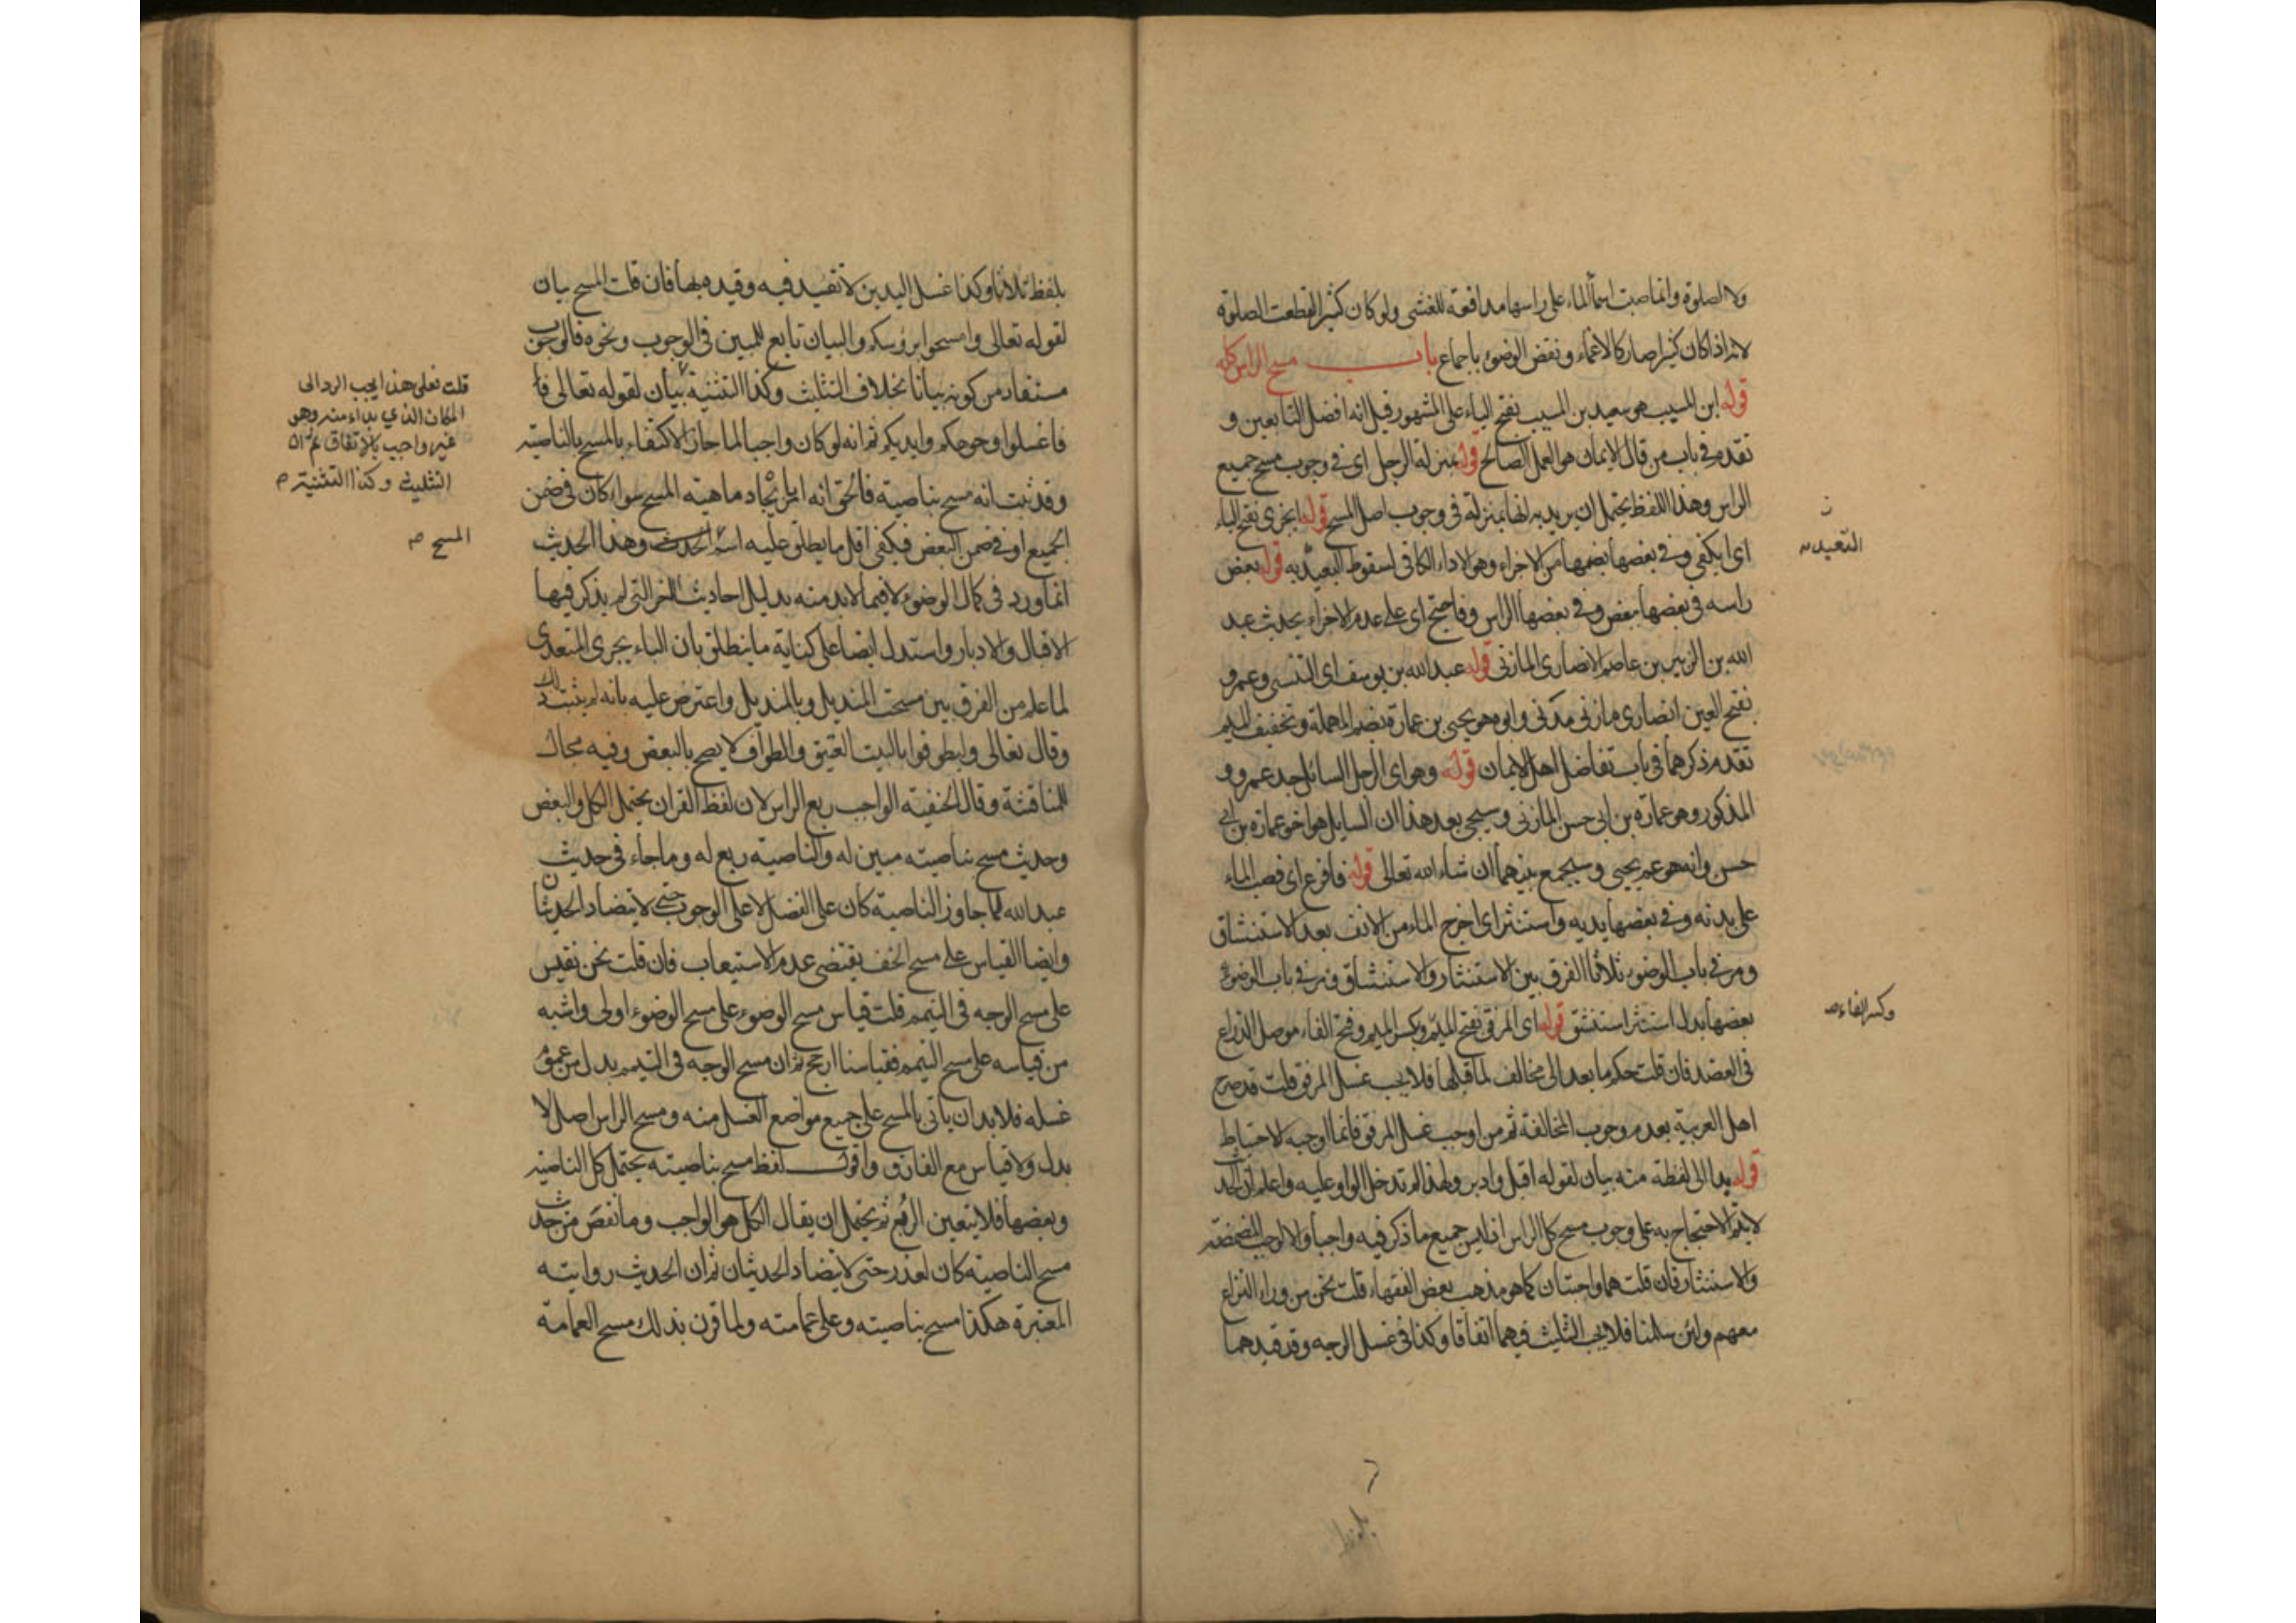 ولا الصلوة وانما صبت اسما الماء على راسها مدافعة للغشى ولو كان كثيرا لقطعت الصلوة
لانه اذا كان كثيرا صار كالاغماء ونقض الوضوء باجماع باب مسح الراس كله
قوله ابن المسيب هو سعيد بن المسيب بفتح الياء على المشهور قيل انه افضل التابعين و
تقدم في باب من قال الايمان هو العمل الصالح قوله بمنزلة الرجل اى في وجوب مسح جميع
الراس وهذا اللفظ يحتمل ان يريد به انها بمنزلته في وجوب اصل المسح قوله ايجزى بفتح الياء
اى ايكفى وفي بعضها بضمها من الاجزاء وهو الاداء الكافى لسقوط التعبد به قوله بعض
راسه في بعضها ببعض وفي بعضها الراس وفاحتج اى على عدم الاجزاء بحديث عبد
الله بن الزبير بن عاصم الانصارى المازنى قوله عبد الله بن يوسف اى التنسى وعمرو
بفتح العين انصارى مازنى مدنى وابوه هو يحيى بن عمارة بضم المهملة وتخفيف الميم
تقدم ذكرهما في باب تفاضل اهل الايمان قوله وهو اى الرجل السائل جد عمرو و
المذكور وهو عمارة بن ابى حسن المازنى وسيجى بعد هذا ان السايل هو اخو عمارة بن ابى
حسن وانه هو عم يحيى وسيجمع بينهما ان شاء الله تعالى قوله فافرغ اى فصب الماء
على يدته وفي بعضها يديه واستنثر اى اخرج الماء من الانف بعد الاستنشاق
ومر في باب الوضوء ثلاثا الفرق بين الاستنثار والاستنشاق ومر في باب الوضوء
بعضها بدل استنثر استنشق قوله اى المرفق بفتح الميم وبكسر الميم وفتح الفاء موصل الذراع
في العضد فان قلت حكم ما بعد الى مخالف لما قبلها فلا يجب غسل المرفق قلت قد صرح
اهل العربية بعدم وجوب المخالفة ثم من اوجب غسل المرفق فانما اوجبه لاحتياط
قوله بدا الى لفظة منه بيان لقوله اقبل وادبر ولهذا لم تدخل الواو عليه واعلم ان الحديث
لا يتم الاحتجاج به على وجوب مسح كل الراس اذ ليس جميع ما ذكر فيه واجبا والا لوجب المضمضة
والاستنثار فان قلت هما واجبتان كما هو مذهب بعض الفقهاء قلت نحن من وراء النزاع
معهم ولئن سلمنا فلا يجب التثليث فيهما اتفاقا وكذا في غسل الوجه وقد قيدهما
التعبد
وكسر الفاء صح
بلفظ
بلفظ ثلاثا وكذا غسل اليدين لا تقييد فيه وقيده بها فان قلت المسح بيان
لقوله تعالى وامسحوا برؤسكم والبيان تابع للمبين في الوجوب ونحوه فالوجوب
مستفاد من كونه بيانا بخلاف التثليث وكذا التثنية بيان لقوله تعالى فا
فاغسلوا وجوهكم وايديكم ثم انه لو كان واجبا لما جاز الاكتفاء بالمسح بالناصية
وقد ثبت انه مسح بناصيته فالحق انه امر بايجاد ماهية المسح سواء كان في ضمن
الجميع او في ضمن البعض فيكفى اقل ما يطلق عليه اسم الحدث وهذا الحديث
انما ورد في كمال الوضوء لا فيما لا بد منه بدليل احاديث اخر التي لم يذكر فيها
الاقبال والادبار واستدل ايضا على كفاية ما ينطلق بان الباء يجرى المتعدى
لما علم من الفرق بين مسحت المنديل وبالمنديل واعترض عليه بانه لم يثبت ذلك
وقال تعالى وليطوفوا بالبيت العتيق والطواف لا يصح بالبعض وفيه مجال
للمناقشة وقال الحنفية الواجب ربع الراس لان لفظ القران يحتمل الكل والبعض
وحديث مسح بناصيته مبين له والناصية ربع له وما جاء في حديث
عبد الله لما جاوز الناصية كان على الفضل لا على الوجوب حتى لا يتضاد الحديثان
وايضا القياس على مسح الخف يقتضى عدم الاستيعاب فان قلت نحن نقيس
على مسح الوجه في التيمم قلت قياس مسح الوضوء على مسح الوضوء اولى واشبه
من قياسه على مسح التيمم فقياسنا ارجح ثم ان مسح الوجه في التيمم بدل من عموم
غسله فلا بد ان ياتى بالمسح على جميع مواضع الغسل منه ومسح الراس اصل لا
بدل ولا قياس مع الفارق واقول لفظ مسح بناصيته يحتمل كل الناصية
وبعضها فلا يتعين الربع ثم يحتمل ان يقال الكل هو الواجب وما نقص من حديث
مسح الناصية كان لعذر حتى لا يتضاد الحديثان ثم ان الحديث روايته
المعتبرة هكذا مسح بناصيته وعلى عمامته ولما قرن بذلك مسح العمامة
قلت فعلى هذا يجب الرد الى
المكان الذي بداء منه وهو
غير واجب بالاتفاق ثم ان
التثليث وكذا التثنية
المسح